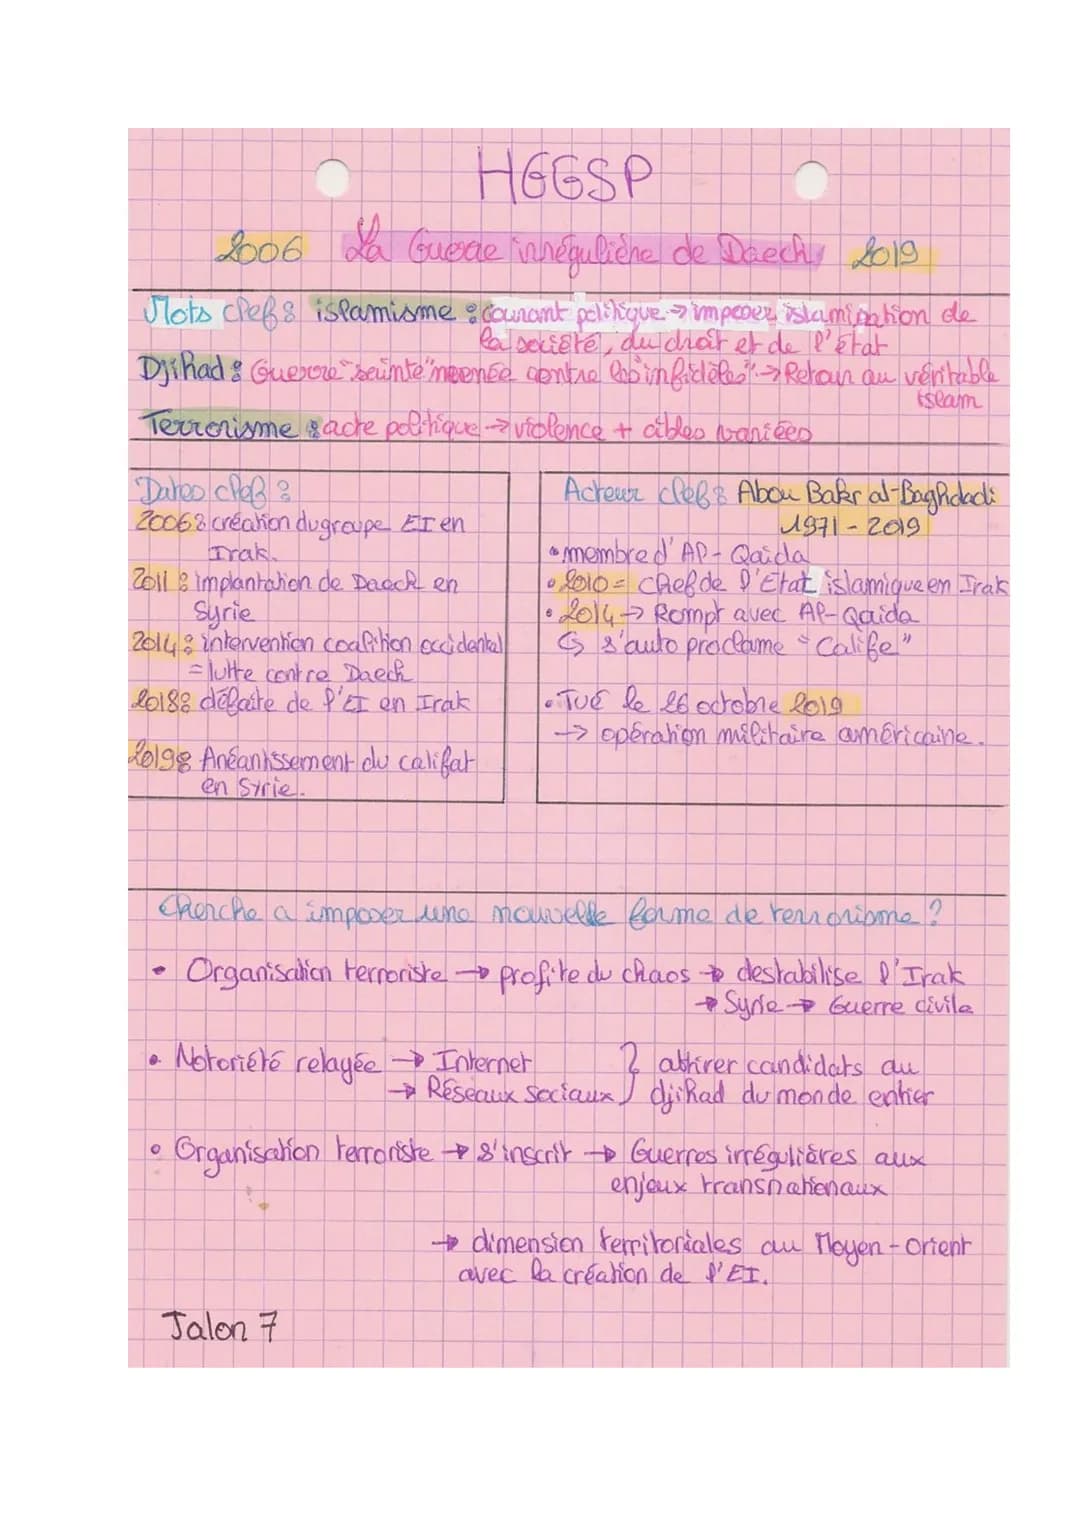 HGGSP
2006 La Guerre irrégulière de Daech 2019
Mots clefs : islamisme : courant politique → imposer islamisation de
la société, du droit et de l'état
Djihad : Guerre "sainte" meenée contre les "infidèles" → Retour au véritable
islam
Terrorisme : acte politique → violence + cibles variées
Dates clef :
2006 : création du groupe EI en
Irak.
2011 : implantation de Daech en
Syrie
2014 : intervention coalition occidental
= lutte contre Daech
2018 : défaite de l'EI en Irak
2019 : Anéantissement du califat
en Syrie.
Acteur clef : Abou Bakr al-Baghdadi
1971 - 2019
• membre d'Al-Qaida
• 2010 = chef de l'Etat islamique en Irak
• 2014 → Rompt avec Al-Qaida
↳ s'auto proclame "Calife"
• Tué le 26 octobre 2019
→ opération militaire américaine.
Cherche a imposer une nouvelle forme de terrorisme ?
• Organisation terroriste → profite du chaos → destabilise l'Irak
→ Syrie → Guerre civile
• Notoriété relayée → Internet
→ Réseaux sociaux } attirer candidats au
djihad du monde entier
• Organisation terroriste → s'inscrit → Guerres irrégulières aux
enjeux transnationaux
→ dimension territoriales au Moyen-Orient
avec la création de l'EI.
Jalon 7